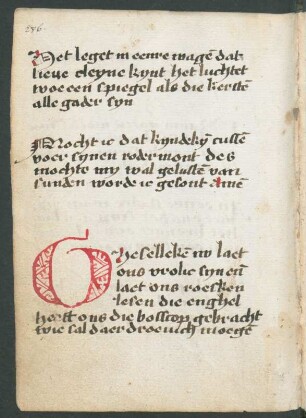 256
Het leget in eenre wagē dat
lieve cleyne kynt het luchtet
twoe een spiegel als die kersten
alle gader syn
Mocht ic dat kyndekȳ cussen
voer synen roder mont des
mochte my wal gelusten van
sunden worde ic gesont Amē
Ghesellekē nu laet
ons vrolic syn eñ
laet ons roesken
lesen die enghel
heeft ons die bosscop gebracht
wie sal daer droevich moegē